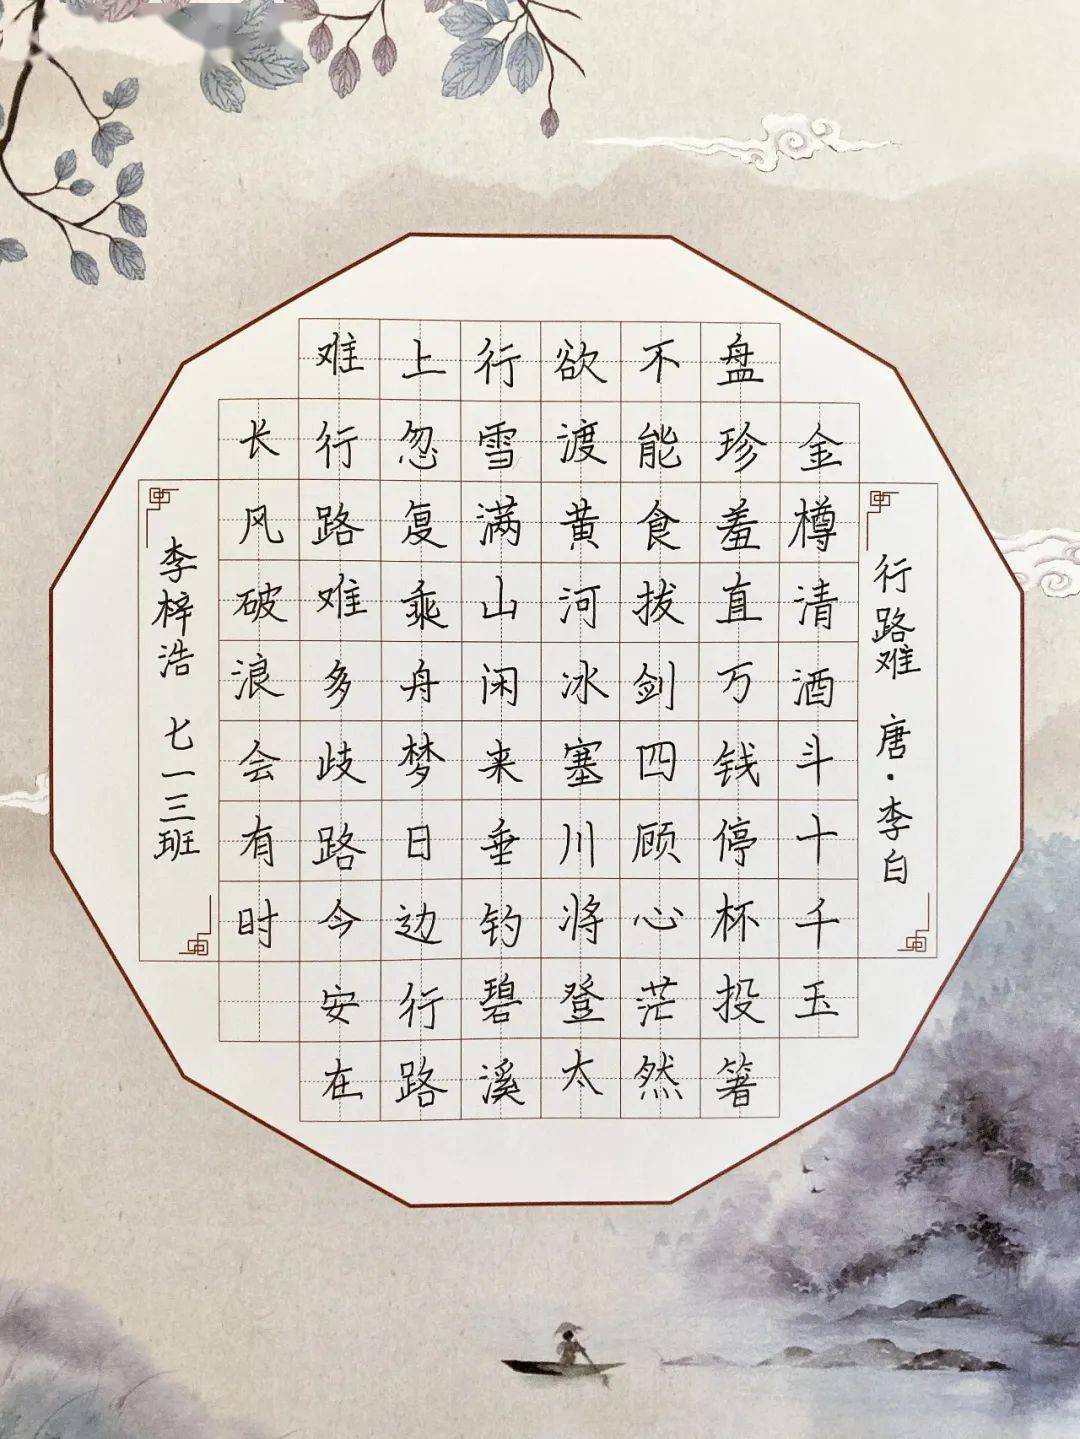 行路难 唐·李白
金樽清酒斗十千玉
盘珍羞直万钱停杯投箸
不能食拔剑四顾心茫然
欲渡黄河冰塞川将登太
行雪满山闲来垂钓碧溪
上忽复乘舟梦日边行路
难行路难多歧路今安在
长风破浪会有时
李梓浩 七一三班